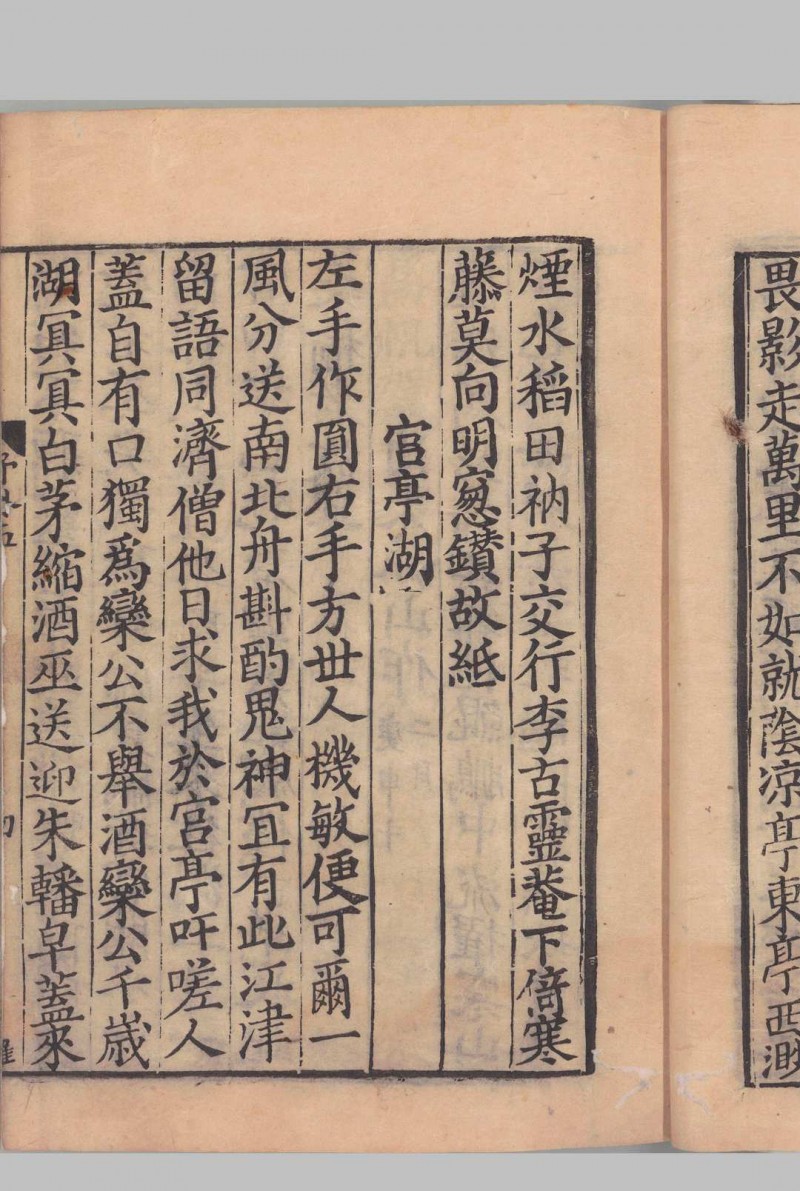 畏影走萬里不如就陰凉亭東亭西渺
煙水稻田衲子交行李古靈菴下倚寒
藤莫向明窓鑚故紙
官亭湖
左手作圓右手方世人機敏便可爾一
風分送南北舟斟酌鬼神冝有此江津
留語同濟僧他日求我於宮亭吁嗟人
蓋自有口獨爲欒公不舉酒欒公千歳
湖冥冥白茅縮酒巫送迎朱轓皁蓋來